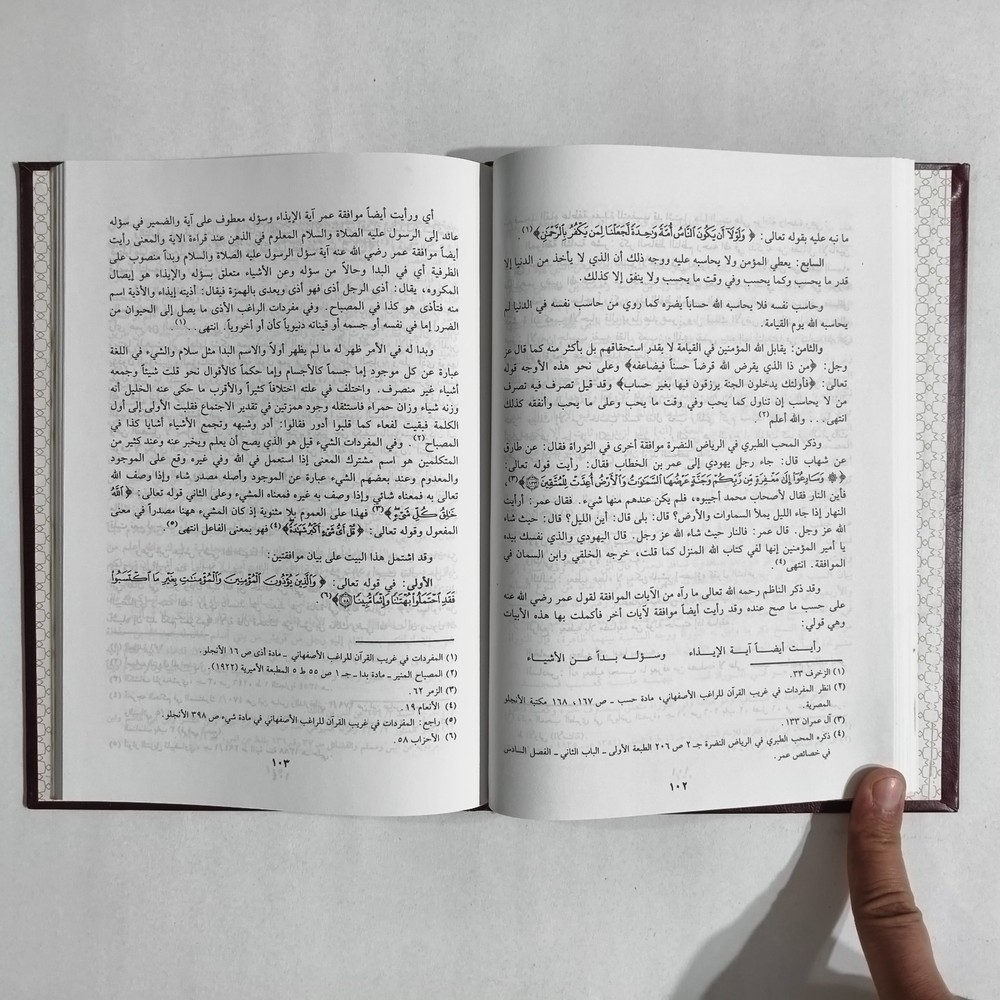 ما نبه عليه بقوله تعالى: ﴿ وَلَوْلَا أَن يَكُونَ النَّاسُ أُمَّةً وَاحِدَةً لَّجَعَلْنَا لِمَن يَكْفُرُ بِالرَّحْمَٰنِ﴾(١).
السابع: يعطي المؤمن ولا يحاسبه عليه ووجه ذلك أن الذي لا يأخذ من الدنيا إلا
قدر ما يحسب وكما يحسب وفي وقت ما يحسب ولا ينفق إلا كذلك.
وحاسب نفسه فلا يحاسبه الله حساباً يضره كما روي من حاسب نفسه في الدنيا لم
يحاسبه الله يوم القيامة.
والثامن: يقابل الله المؤمنين في القيامة لا بقدر استحقاقهم بل بأكثر منه كما قال عز
وجل: ﴿من ذا الذي يقرض الله قرضاً حسناً فيضاعفه﴾ وعلى نحو هذه الأوجه قوله
تعالى: ﴿فأولئك يدخلون الجنة يرزقون فيها بغير حساب﴾ وقد قيل تصرف فيه تصرف
من لا يحاسب إن تناول كما يحب وفي وقت ما يحب وعلى ما يحب وأنفقه كذلك
انتهى... والله أعلم(٢).
وذكر المحب الطبري في الرياض النضرة موافقة أخرى في التوراة فقال: عن طارق
عن شهاب قال: جاء رجل يهودي إلى عمر بن الخطاب فقال: رأيت قوله تعالى:
﴿۞ وَسَارِعُوا إِلَىٰ مَغْفِرَةٍ مِّن رَّبِّكُمْ وَجَنَّةٍ عَرْضُهَا السَّمَاوَاتُ وَالْأَرْضُ أُعِدَّتْ لِلْمُتَّقِينَ ١٣٣﴾(٣)،
فأين النار فقال لأصحاب محمد أجيبوه، فلم يكن عندهم منها شيء. فقال عمر: أرأيت
النهار إذا جاء الليل يملأ السماوات والأرض؟ قال: بلى قال: أين الليل؟ قال: حيث شاء
الله عز وجل. قال عمر: فالنار حيث شاء الله عز وجل. قال اليهودي والذي نفسك بيده
يا أمير المؤمنين إنها لفي كتاب الله المنزل كما قلت، خرجه الخلقي وابن السمان في
الموافقة. انتهى(٤)
وقد ذكر الناظم رحمه الله تعالى ما رآه من الآيات الموافقة لقول عمر رضي الله عنه
على حسب ما صح عنده وقد رأيت أيضاً موافقة لآيات أخر فأكملت بها هذه الأبيات
وهي قولي:
رأيت أيضاً آية الإيذاء وسؤله بدأ عن الأشياء
(١) الزخرف ٣٣.
(٢) انظر المفردات في غريب القرآن للراغب الأصفهاني، مادة حسب ـ ص ١٦٧، ١٦٨ مكتبة الأنجلو
المصرية.
(٣) آل عمران ١٣٣.
(٤) ذكره المحب الطبري في الرياض النضرة جـ ٢ ص ٢٠٦ الطبعة الأولى ـ الباب الثاني ـ الفصل السادس
في خصائص عمر.
١٠٢
أي ورأيت أيضاً موافقة عمر آية الإيذاء وسؤله معطوف على آية والضمير في سؤله
عائد إلى الرسول عليه الصلاة والسلام المعلوم في الذهن عند قراءة الاية والمعنى رأيت
أيضاً موافقة عمر رضي الله عنه آية سؤل الرسول عليه الصلاة والسلام وبدأ منصوب على
الظرفية أي في البدا وحالاً من سؤله وعن الأشياء متعلق بسؤله والإيذاء هو إيصال
المكروه، يقال: أذى الرجل أذى فهو أذى ويعدى بالهمزة فيقال: أذيته إيذاء والأذية اسم
منه فتأذى هو كذا في المصباح. وفي مفردات الراغب الأذى ما يصل إلى الحيوان من
الضرر إما في نفسه أو جسمه أو قيناته دنيوياً كأن أو أخروياً. انتهى..(١).
وبدا له في الأمر ظهر له ما لم يظهر أولاً والاسم البدا مثل سلام والشيء في اللغة
عبارة عن كل موجود إما جسماً كالأجسام وإما حكماً كالأقوال نحو قلت شيئاً وجمعه
أشياء غير منصرف. واختلف في علته اختلافاً كثيراً والأقرب ما حكى عنه الخليل أنه
وزنه شياء وزان حمراء فاستثقله وجود همزتين في تقدير الاجتماع فقلبت الأولى إلى أول
الكلمة فبقيت لفعاء كما قلبوا أدور فقالوا: آدر وشبهه وتجمع الأشياء أشايا كذا في
المصباح(٢). وفي المفردات الشيء قيل هو الذي يصح أن يعلم ويخبر عنه وعند كثير من
المتكلمين هو اسم مشترك المعنى إذا استعمل في الله وفي غيره وقع على الموجود
والمعدوم وعند بعضهم الشيء عبارة عن الموجود وأصله مصدر شاء وإذا وصف الله
تعالى به فمعناه شائي وإذا وصف به غيره فمعناه المشيء وعلى الثاني قوله تعالى: ﴿ اللَّهُ
خَالِقُ كُلِّ شَيْءٍ﴾(٣) فهذا على العموم بلا مثنوية إذ كان المشيء ههنا مصدراً في معنى
المفعول وقوله تعالى: ﴿قُلْ أَيُّ شَيْءٍ أَكْبَرُ شَهَادَةً﴾(٤) فهو بمعنى الفاعل انتهى(٥).
وقد اشتمل هذا البيت على بيان موافقتين:
الأولى: في قوله تعالى: ﴿ وَالَّذِينَ يُؤْذُونَ الْمُؤْمِنِينَ وَالْمُؤْمِنَاتِ بِغَيْرِ مَا اكْتَسَبُوا
فَقَدِ احْتَمَلُوا بُهْتَانًا وَإِثْمًا مُّبِينًا ٥٨﴾(٦)
(١) المفردات في غريب القرآن للراغب الأصفهاني ـ مادة أذى ص ١٦ الأنجلو.
(٢) المصباح المنير ـ مادة بدا ـ جـ ١ ص ٥٥ ط ٥ المطبعة الأميرية (١٩٢٢).
(٣) الزمر ٦٢.
(٤) الأنعام ١٩.
(٥) راجع: المفردات في غريب القرآن للراغب الأصفهاني في مادة شيء ص ٣٩٨ الأنجلو.
(٦) الأحزاب ٥٨.
١٠٣